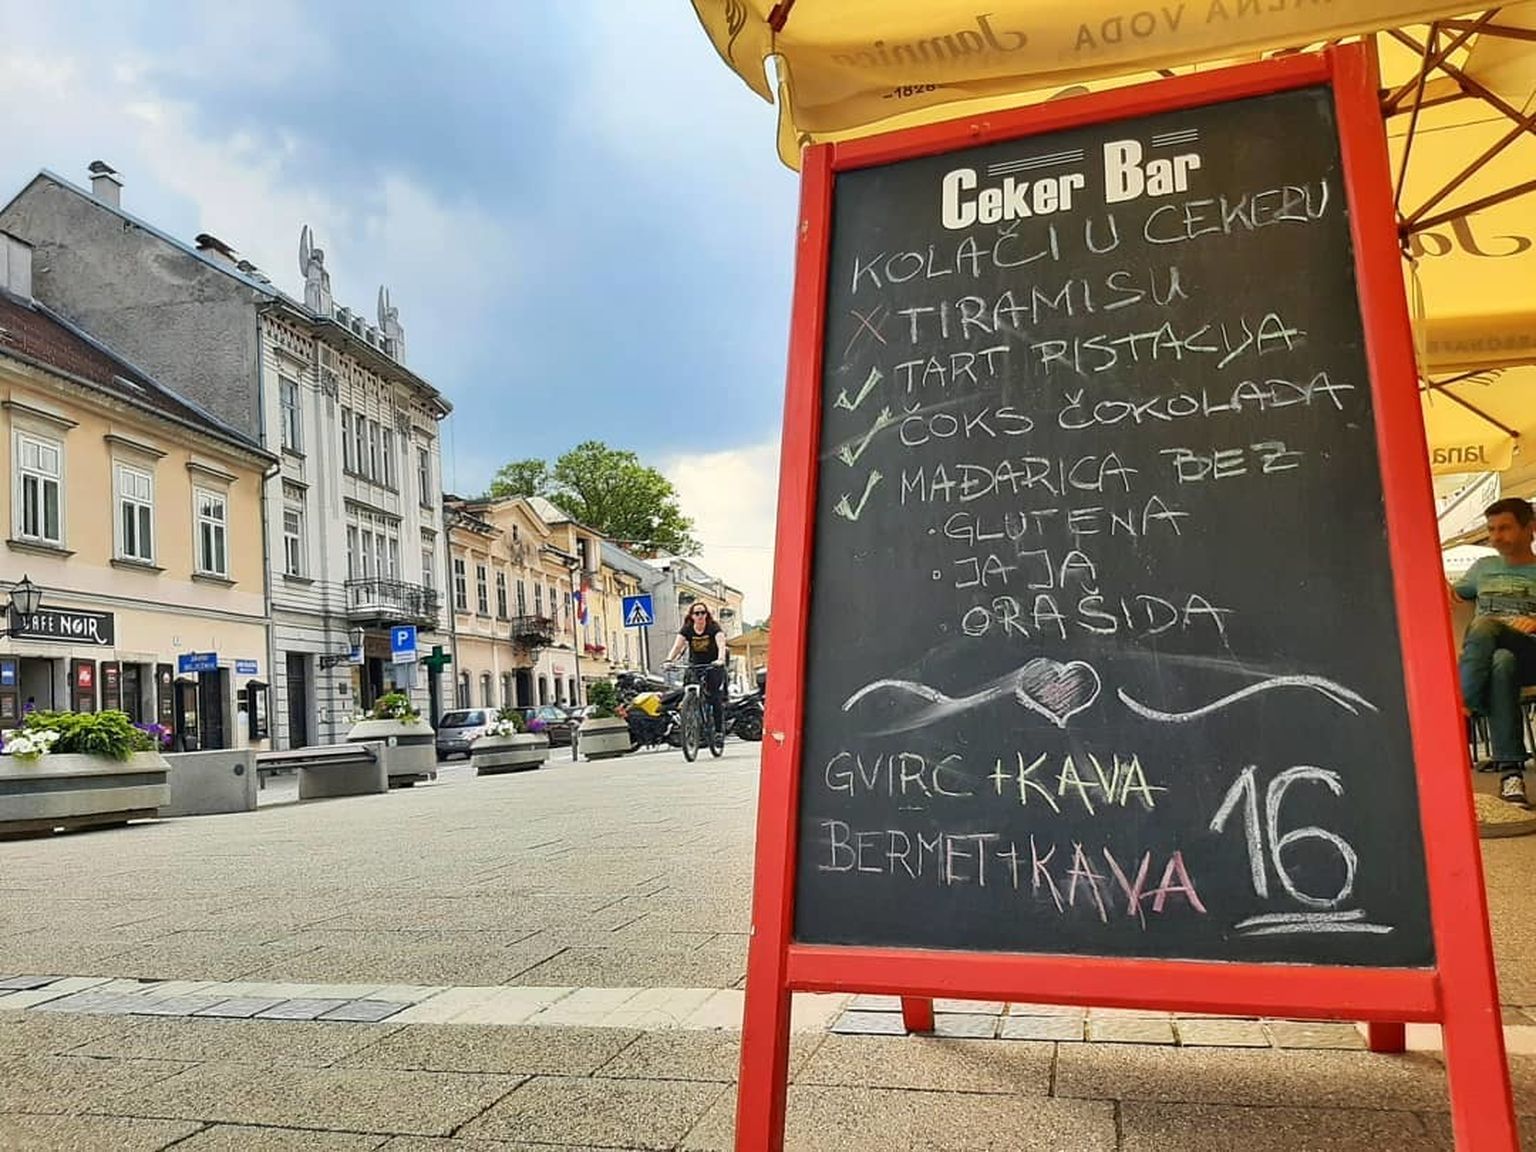 Jamnica
ALNA VODA
-1828-
Ceker Bar
KOLAČI U CEKERU
X TIRAMISU
✓ TART PISTACIJA
✓ ČOKS ČOKOLADA
✓ MAĐARICA BEZ
· GLUTENA
· JAJA
· ORAŠIDA
GVIRC + KAVA
BERMET + KAVA
16
CAFE NOIR
P
Jana